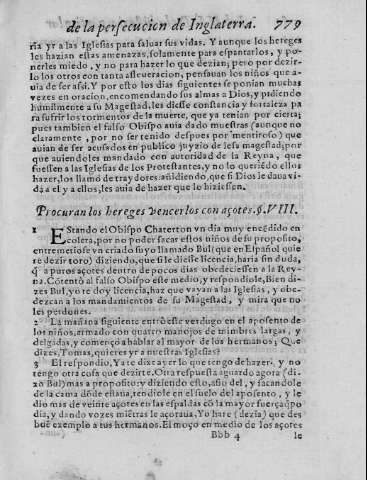 de la persecucion de Inglaterra. 779
ria yr a las Iglesias para saluar sus vidas. Y aunque los hereges
les hazian estas amenazas, solamente para espantarlos, y po-
nerles miedo, y no para hazer lo que dezian; pero por dezir-
lo los otros con tanta asseueracion, pensauan los niños que a-
uia de ser assi. Y por esto los dias siguientes se ponian muchas
vezes en oracion, encomendando sus almas a Dios, y pidiendo
humilmente a su Magestad, les diesse constancia y fortaleza pa
ra sufrir los tormentos de la muerte, que ya tenian por cierta;
pues tambien el falso Obispo auia dado muestras (aunque no
claramente, por no ser tenido despues por mentiroso) que
auian de ser acusados en publico juyzio de lesa magestad, por
que auiendoles mandado con autoridad de la Reyna, que
fuessen a las Iglesias de los Protestantes, y no lo queriédo ellos
hazer, los llamò de traydores, añidiendo, que si Dios le daua vi-
da a el y a ellos, les auia de hazer que lo hiziessen.
Procuran los hereges vencerlos con açotes. §. VIII.
1 Estando el Obispo Chaterton vn dia muy encédido en
colera, por no poder sacar estos niños de su proposito,
entremetiose vn criado suyo llamado Bul (que en Español quie
re dezir toro) diziendo, que si le diesse licencia, haria sin duda,
q̃ a puros açotes dentro de pocos dias obedeciessen a la Rey-
na. Cõtentò al falso Obispo este medio, y respondiole, Bien di-
zes Bul, yo te doy licencia, haz que vayan a las Iglesias, y obe-
dezcan a los mandamientos de su Magestad, y mira que no
les perdones.
2 La mañana siguiente entrò este verdugo en el aposento de
los niños, armado con quatro manojos de mimbres largas, y
delgadas, y començò a hablar al mayor de los hermanos; Que
dizes, Tomas, quieres yr a nuestras Iglesias?
3 El respondio, Ya te dixe ayer lo que tengo de hazer, y no
tengo otra cosa que dezirte. Otra respuesta aguardo agora (di-
zo Bul) mas a proposito: y diziendo esto, asio del, y sacandole
de la cama dõde estaua, tendiole en el suelo del aposento, y le
dio mas de veinte açotes en las espaldas cõ la mayor fuerça q̃ po
dia, y dando vozes miẽtras le açotaua, Yo hare (dezia) que des
buẽ exemplo a tus hermanos. El moço en medio de los açotes
Bbb 4 le